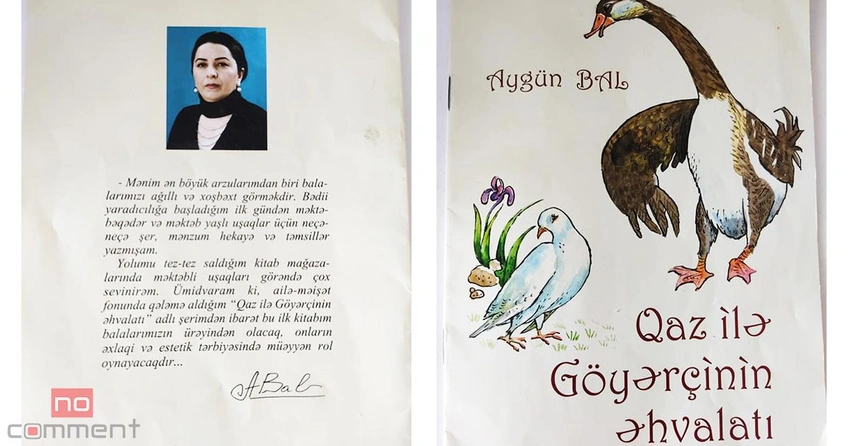 - Mənim ən böyük arzularımdan biri bala-
larımızı ağıllı və xoşbəxt görməkdir. Bədii
yaradıcılığa başladığım ilk gündən məktə-
bəqədər və məktəb yaşlı uşaqlar üçün neçə-
neçə şer, mənzum hekayə və təmsillər
yazmışam.
Yolumu tez-tez saldığım kitab mağaza-
larında məktəbli uşaqları görəndə çox
sevinirəm. Ümidvaram ki, ailə-məişət
fonunda qələmə aldığım “Qaz ilə Göyərçinin
əhvalatı” adlı şerimdən ibarət bu ilk kitabım
balalarımızın ürəyindən olacaq, onların
əxlaqi və estetik tərbiyəsində müəyyən rol
oynayacaqdır...
ABal
no
comment
Aygün BAL
Qaz ilə
Göyərçinin
əhvalatı